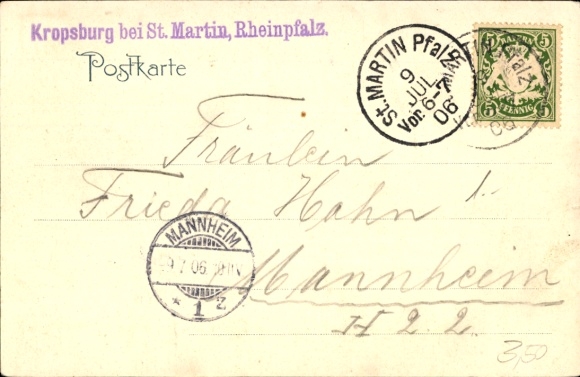 Kropsburg bei St. Martin, Rheinpfalz.
Postkarte
St. MARTIN Pfalz
9
JUL
Vor. 6-7
06
BAYERN
5 5
5 5
PFENNIG
Fräulein
Frieda Hahn
1.-
MANNHEIM
9.7.06
* 1 z
Mannheim
H 2. 2.
3,50